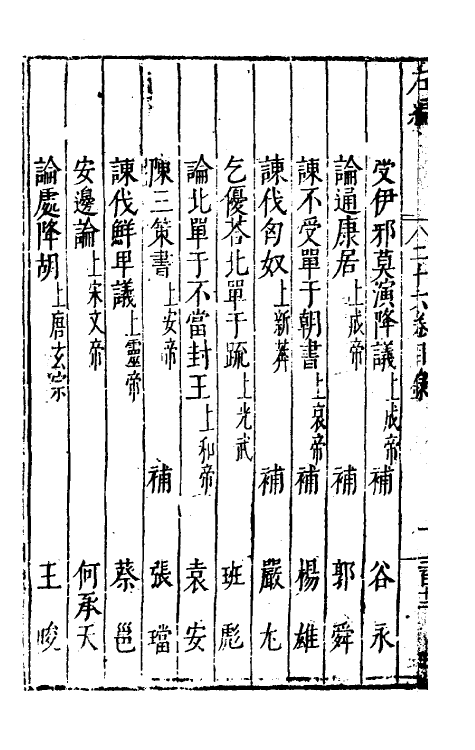 二十六卷目錄
受伊邪莫演降議 上成帝 補 谷永
論通康居 上成帝 補 郭舜
諫不受單于朝書 上哀帝 補 楊雄
諫伐匈奴 上新莽 補 嚴尤
乞優荅北單于疏 上光武 班彪
論北單于不當封王 上和帝 袁安
陳三策書 上安帝 補 張璫
諫伐鮮卑議 上靈帝 蔡邕
安邊論 上宋文帝 何承天
論處降胡 上唐玄宗 王晙